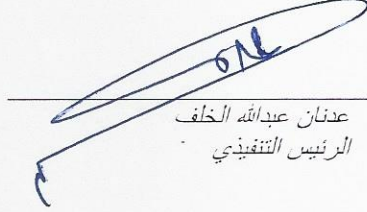 عدنان عبدالله الخلف
الرئيس التنفيذي